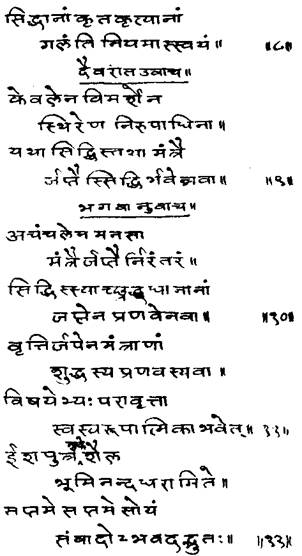 सिद्धानां कृतकृत्यानां
गलंति नियमास्स्वयं॥ ॥८॥
दैवरात उवाच॥
केवलेन विमर्शेन
स्थिरेण निरुपाधिना॥
यथा सिद्धिस्तथा मंत्रै
र्जप्तैस्सिद्धिर्भवेन्नवा॥ ॥९॥
भगवानुवाच॥
अचंचलेन मनसा
मंत्रैर्जप्तैर्निरंतरं॥
सिद्धिस्स्याच्छ्रद्दधानानां
जप्तेन प्रणवेनवा॥ ॥१०॥
वृत्तिर्जपेन मंत्राणां
शुद्धस्य प्रणवस्यवा॥
विषयेभ्यः परावृत्ता
स्वस्वरूपात्मिका भवेत्॥ ११॥
ईशपुत्र शैल
भूमिनन्दधरामिते॥
सप्तमे सप्तमे सोयं
संवादोऽभवदद्भुतः॥ ॥१२॥